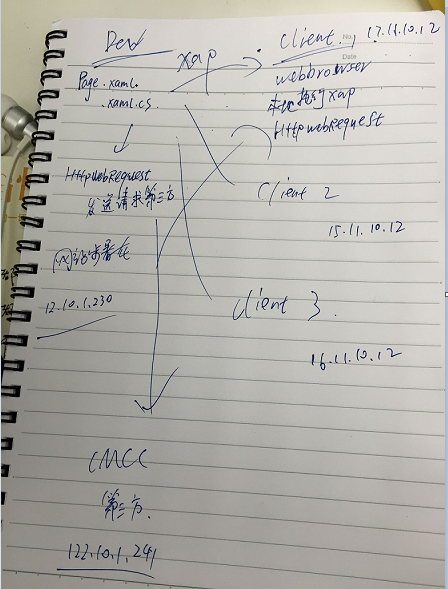 Dev
xap
Client 1
17.11.10.12
No.
Date
Page.xaml
.xaml.cs
webbrowser
本地执行xap
HttpwebRequest
HttpwebRequest
发送请求第三方
Client 2
15.11.10.12
12.10.1.230
Client 3
16.11.10.12
CMCC
第三方
122.10.1.241